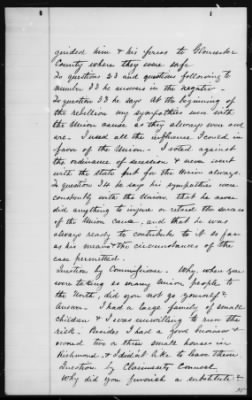 guided him & his press to Gloucester
County where they were safe
To questions 23 and questions following to
number 33 he answers in the negative.
To question 33 he says At the beginning of
the rebellion my sympathies were with
the Union cause & they always were and
are. I used all the influence I could in
favor of the Union. I voted against
the ordinance of secession & never went
with the state but for the Union always.
To question 34 he says his sympathies were
constantly with the Union that he never
did anything to injure or retard the success
of the Union Cause, and that he was
always ready to contribute to it so far
as his means & the circumstances of the
case permitted.
Question by Commissioner. Why, when you
were taking so many Union people to
the North, did you not go yourself?
Answer. I had a large family of small
children & I was unwilling to run the
risk. Besides I had a good business &
owned two or three small houses in
Richmond & I didn't like to leave them
Question by Claimants Counsel
Why did you furnish a substitute?